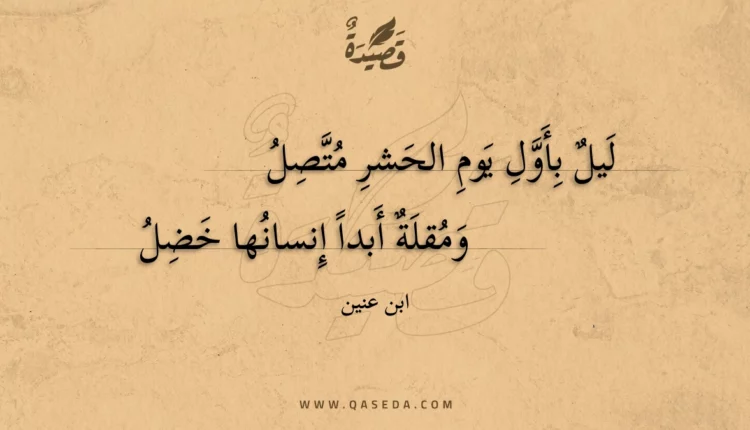 قَصِيْدَةٌ
لَيلٌ بِأَوَّلِ يَومِ الحَشرِ مُتَّصِلُ
وَمُقلَةٌ أَبداً إِنسانُها خَضِلُ
ابن عنين
WWW.QASEDA.COM